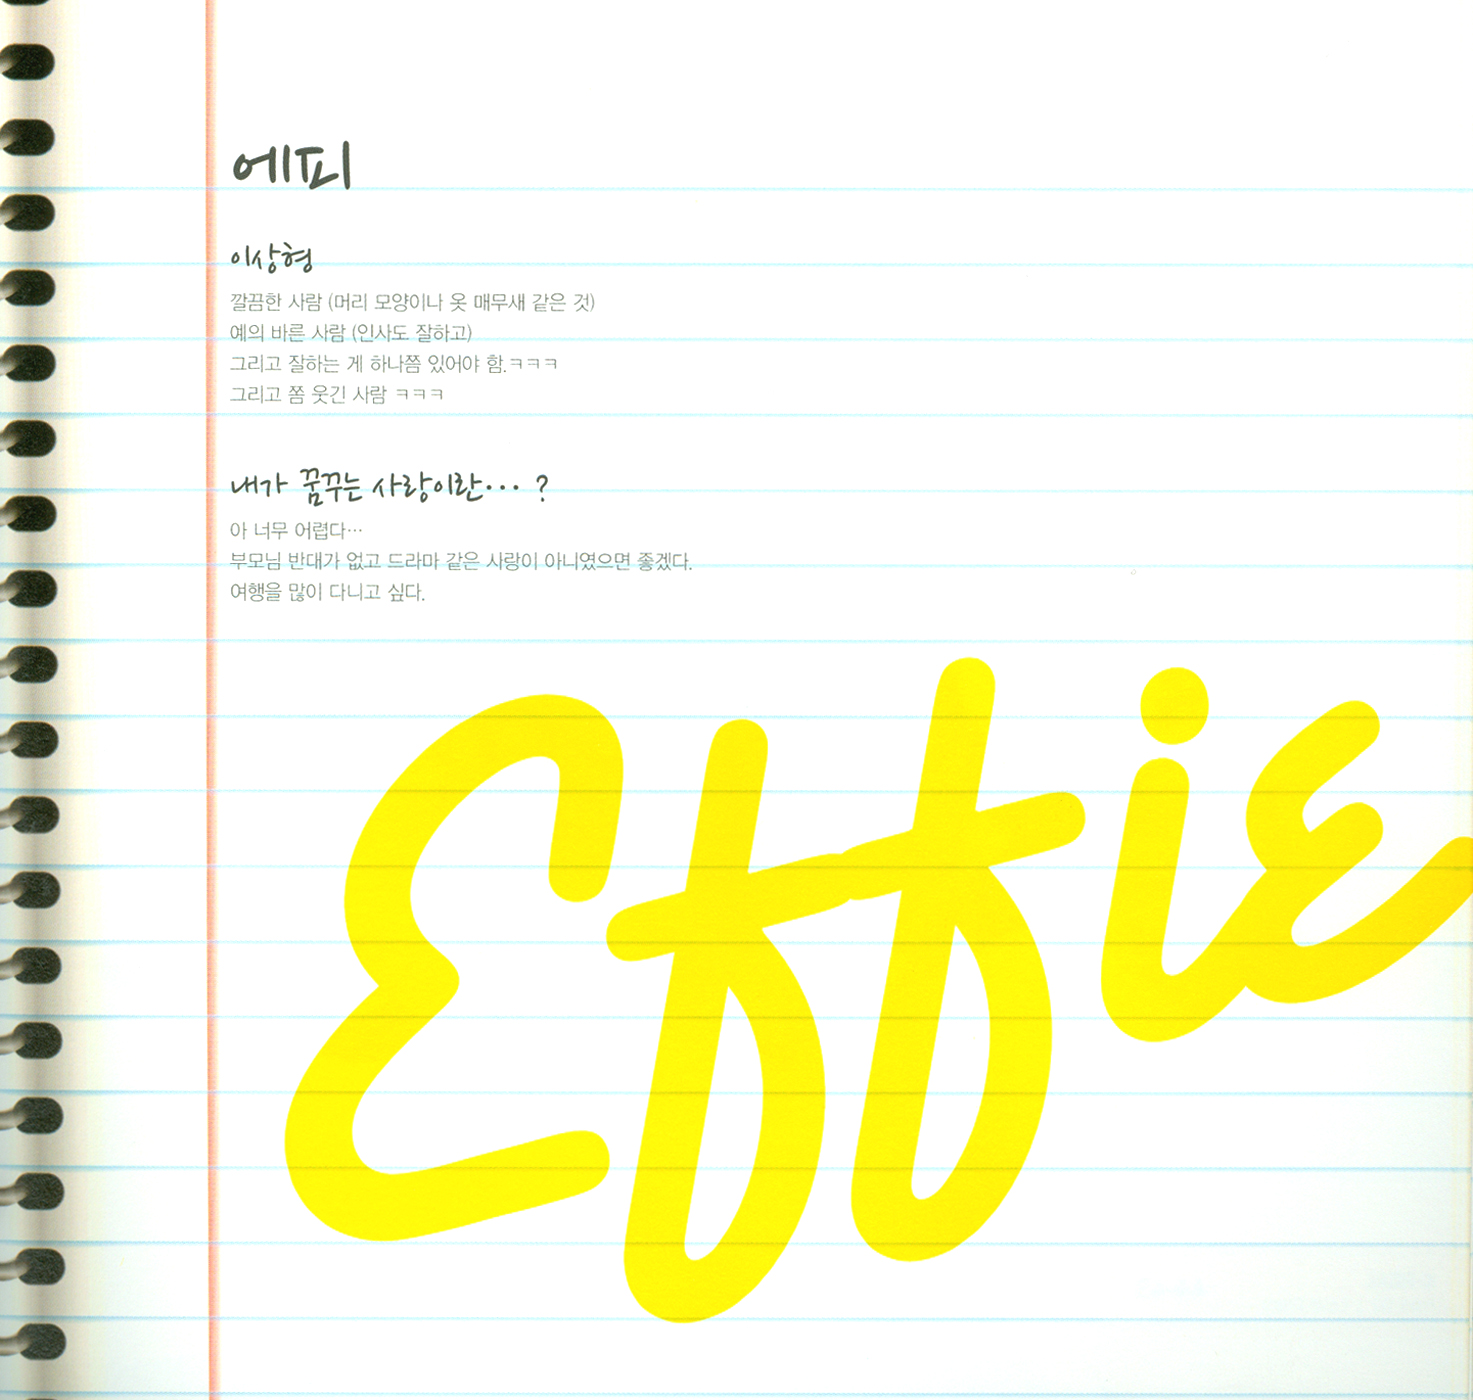 에피
이상형
깔끔한 사람 (머리 모양이나 옷 매무새 같은 것)
예의 바른 사람 (인사도 잘하고)
그리고 잘하는 게 하나쯤 있어야 함.ㅋㅋㅋ
그리고 쫌 웃긴 사람 ㅋㅋㅋ
내가 꿈꾸는 사랑이란... ?
아 너무 어렵다…
부모님 반대가 없고 드라마 같은 사랑이 아니였으면 좋겠다.
여행을 많이 다니고 싶다.
Effie